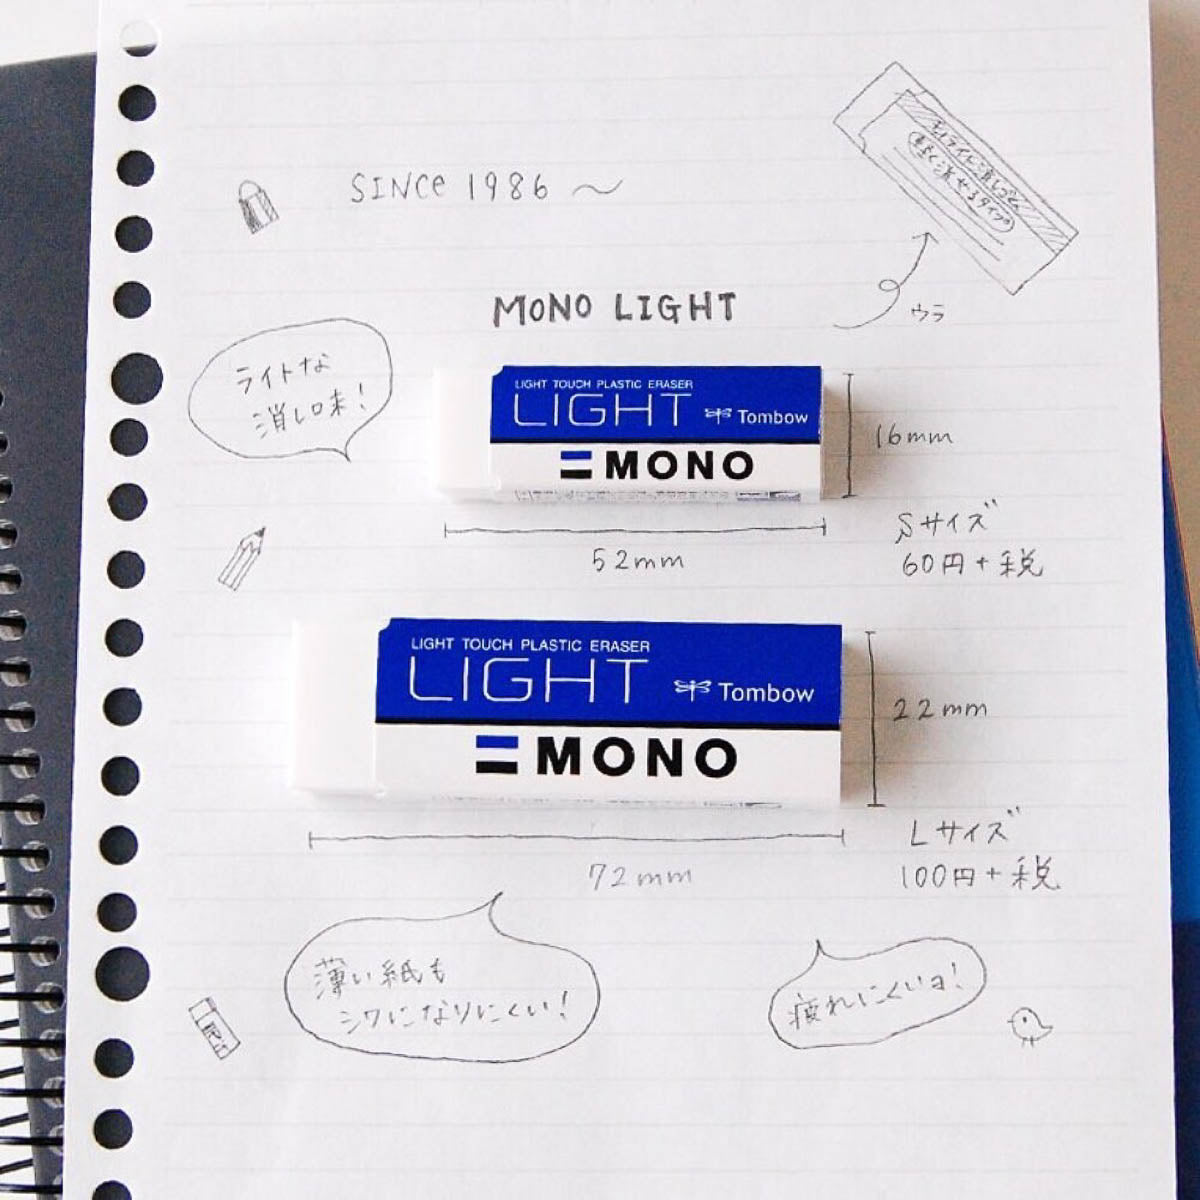 SINCE 1986 〜
モノライト消しゴム
軽く消せるタイプ
ウラ
MONO LIGHT
ライトな
消し味!
LIGHT TOUCH PLASTIC ERASER
LIGHT Tombow
MONO
16mm
52mm
Sサイズ
60円+税
LIGHT TOUCH PLASTIC ERASER
LIGHT Tombow
MONO
22mm
72mm
Lサイズ
100円+税
薄い紙も
シワになりにくい!
疲れにくいヨ!